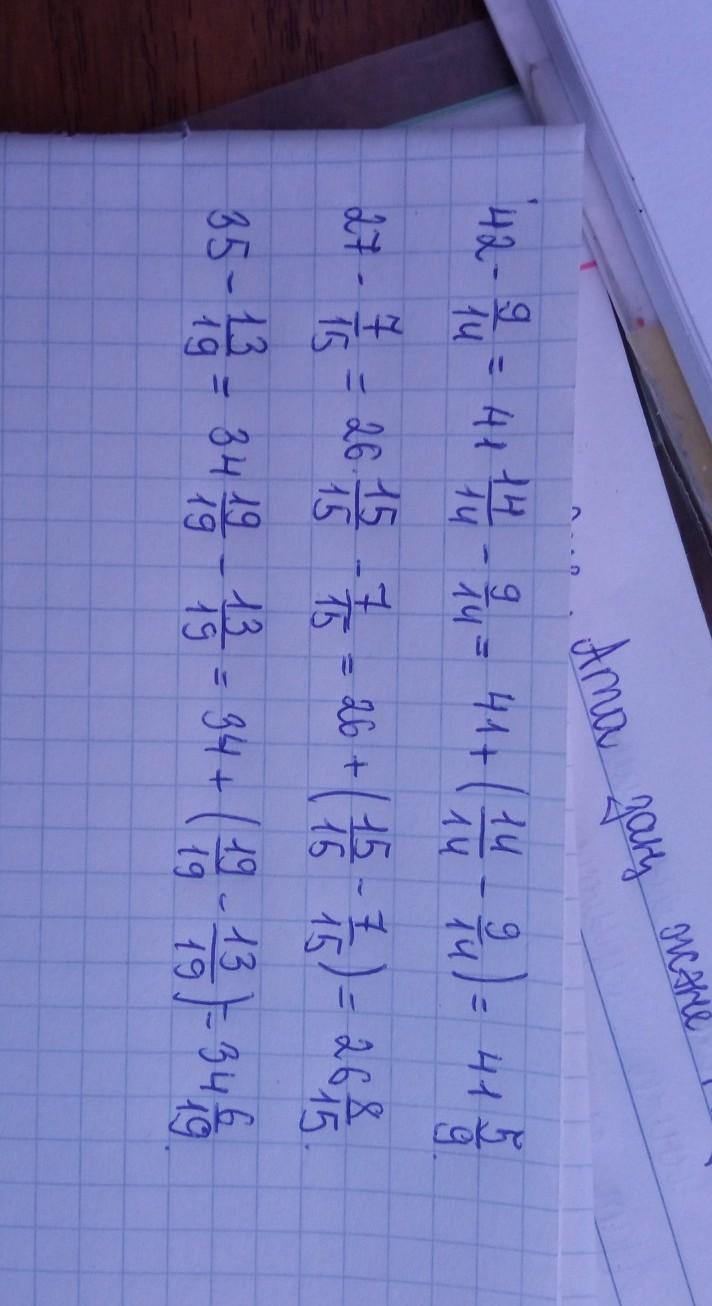 42 - 9/14 = 41 14/14 - 9/14 = 41 + (14/14 - 9/14) = 41 5/9.
27 - 7/15 = 26 15/15 - 7/15 = 26 + (15/15 - 7/15) = 26 8/15.
35 - 13/19 = 34 19/19 - 13/19 = 34 + (19/19 - 13/19) - 34 6/19.
Ата заң және